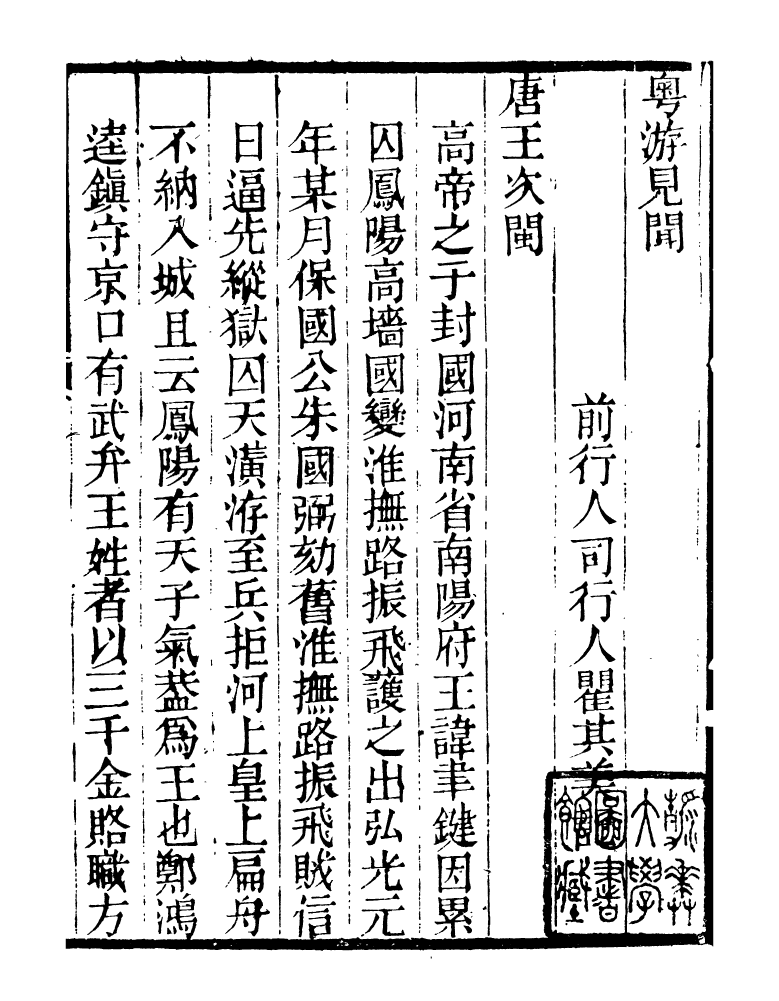 粤游見聞
前行人司行人瞿其美
唐王次閩
高帝之于封國河南省南陽府王諱聿鍵因累
囚鳳陽高墻國變淮撫路振飛護之出弘光元
年某月保國公朱國弼劾舊淮撫路振飛賊信
日逼先縱獄囚天潢洊至兵拒河上皇上扁舟
不納入城且云鳳陽有天子氣葢爲王也鄭鴻
逵鎭守京口有武弁王姓者以三千金賂職方
大學
圖書
館藏